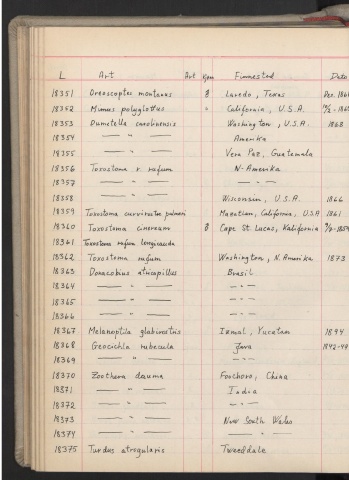 L Art Art Kjøn Finnested Dato
18351 Oreoscoptes montanus 8 Laredo, Texas Dec. 186
18352 Mimus polyglottus " California, U.S.A.
18353 Dumetella carolinensis Washington, U.S.A. 1868
18354 — " — Amerika
18355 — " — Vera Paz, Guatemala
18356 Toxostoma r. rufum N-Amerika
18357 — " — — " —
18358 — " — Wisconsin, U.S.A. 1866
18359 Toxostoma curvirostre palmeri Mazatlan, California, U.S.A 1861
18360 Toxostoma cinereum 8 Cape St. Lucas, Kalifornia
18361 Toxostoma rufum longicauda
18362 Toxostoma rufum Washington, N. Amerika 1873
18363 Donacobius atricapillus Brasil
18364 — " — — " —
18365 — " — — " —
18366 — " — — " —
18367 Melanoptila glabirostris Izamal, Yucatan 1894
18368 Geocichla rubecula Java 1842-44
18369 — " — — " —
18370 Zoothera dauma Foochow, China
18371 — " — India
18372 — " — — " —
18373 — " — New South Wales
18374 — " — — " —
18375 Turdus atrogularis Tweeddale